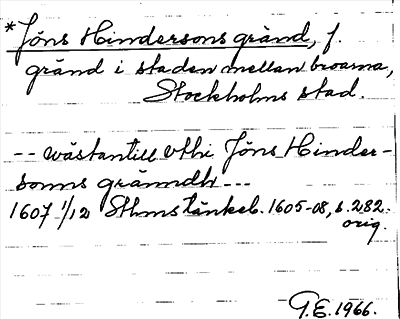 *Jöns Hindersons gränd, f.
gränd i staden mellan broarna,
Stockholms stad.
-- wästantill vthi Jöns Hinder-
sonns gränndh ---
1607 1/12 Sthms tänkeb. 1605-08, s. 282.
orig.
G.E. 1966.